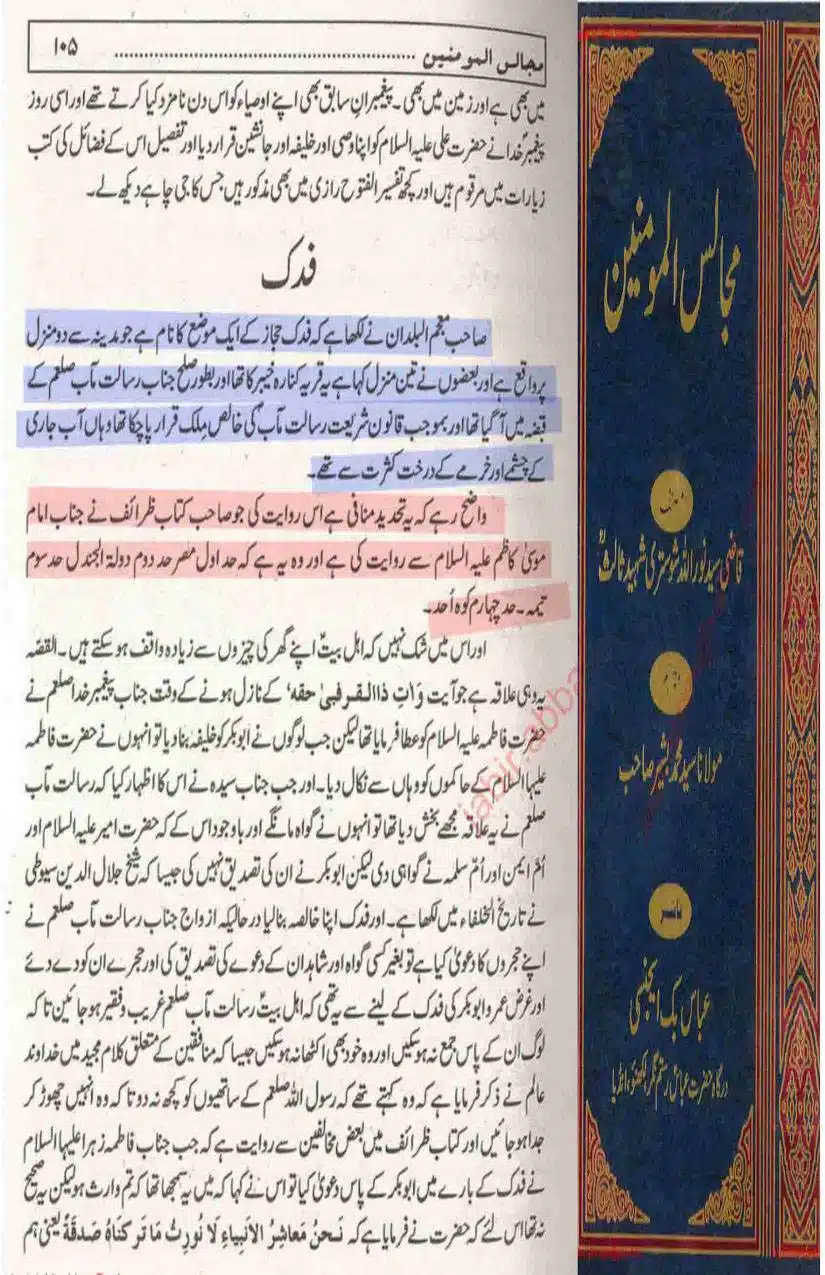 مجالس المومنین ........................................................ ۱۰۵
میں بھی ہے اور زمین میں بھی۔ پیغمبرانِ سابق بھی اپنے اوصیاء کو اس دن نامزد کیا کرتے تھے اور اسی روز
پیغمبرؐ خدا نے حضرت علی علیہ السلام کو اپنا وصی اور خلیفہ اور جانشین قرار دیا اور تفصیل اس کے فضائل کی کتب
زیارات میں مرقوم ہیں اور کچھ تفسیر الفتوح رازی میں بھی مذکور ہیں جس کا جی چاہے دیکھ لے۔
فدک
صاحب معجم البلدان نے لکھا ہے کہ فدک حجاز کے ایک موضع کا نام ہے جو مدینہ سے دو منزل
پر واقع ہے اور بعضوں نے تین منزل کہا ہے یہ قریہ کنارہ خیبر کا تھا اور بطور صلح جناب رسالت مآب صلعم کے
قبضہ میں آ گیا تھا اور بموجب قانون شریعت رسالت مآب کی خالص مِلک قرار پا چکا تھا وہاں آب جاری
کے چشمے اور خرمے کے درخت کثرت سے تھے۔
واضح رہے کہ یہ تحدید منافی ہے اس روایت کی جو صاحب کتاب ظرائف نے جناب امام
موسیٰ کاظم علیہ السلام سے روایت کی ہے اور وہ یہ ہے کہ حد اول مصر حد دوم دولة الجندل حد سوم
تیمہ۔ حد چہارم کوہ اُحد۔
اور اس میں شک نہیں کہ اہل بیتؑ اپنے گھر کی چیزوں سے زیادہ واقف ہو سکتے ہیں۔ القصّہ
یہ وہی علاقہ ہے جو آیت وَاٰتِ ذَا الْقربیٰ حقہ' کے نازل ہونے کے وقت جناب پیغمبر خدا صلعم نے
حضرت فاطمہ علیہ السلام کو عطا فرمایا تھا لیکن جب لوگوں نے ابوبکر کو خلیفہ بنا دیا تو انہوں نے حضرت فاطمہ
علیہا السلام کے حاکموں کو وہاں سے نکال دیا۔ اور جب جناب سیدہ نے اس کا اظہار کیا کہ رسالت مآب
صلعم نے یہ علاقہ مجھے بخش دیا تھا تو انہوں نے گواہ مانگے اور باوجود اس کے کہ حضرت امیر علیہ السلام اور
اُمّ ایمن اور اُمّ سلمہ نے گواہی دی لیکن ابوبکر نے ان کی تصدیق نہیں کی جیسا کہ شیخ جلال الدین سیوطی
نے تاریخ الخلفاء میں لکھا ہے۔ اور فدک اپنا خالصہ بنا لیا درحالیکہ ازواج جناب رسالت مآب صلعم نے
اپنے حجروں کا دعویٰ کیا ہے تو بغیر کسی گواہ اور شاہد ان کے دعوے کی تصدیق کی اور حجرے ان کو دے دئے
اور غرض عمر و ابوبکر کی فدک کے لینے سے یہ تھی کہ اہل بیتؑ رسالت مآب صلعم غریب و فقیر ہو جائیں تاکہ
لوگ ان کے پاس جمع نہ ہو سکیں اور وہ خود بھی اکٹھا نہ ہو سکیں جیسا کہ منافقین کے متعلق کلام مجید میں خداوند
عالم نے ذکر فرمایا ہے کہ وہ کہتے تھے کہ رسول اللہ صلعم کے ساتھیوں کو کچھ نہ دو تاکہ وہ انہیں چھوڑ کر
جدا ہو جائیں اور کتاب ظرائف میں بعض مخالفین سے روایت ہے کہ جب جناب فاطمہ زہرا علیہا السلام
نے فدک کے بارے میں ابوبکر کے پاس دعویٰ کیا تو اس نے کہا کہ میں یہ سمجھا تھا کہ تم وارث ہو لیکن یہ صحیح
نہ تھا اس لئے کہ حضرت نے فرمایا ہے کہ نَحنُ مَعاشِرُ الاَنبیاءِ لَا نُورِثُ مَا تَرکناہُ صَدَقَةٌ یعنی ہم
مجالس المومنین
مؤلف
قاضی سید نور اللہ شوستری شہید ثالثؒ
مترجم
مولانا سید محمد بشیر صاحب
ناشر
عباس بک ایجنسی
درگاہ حضرت عباسؑ رستم نگر لکھنؤ۔ انڈیا
jabir.abba